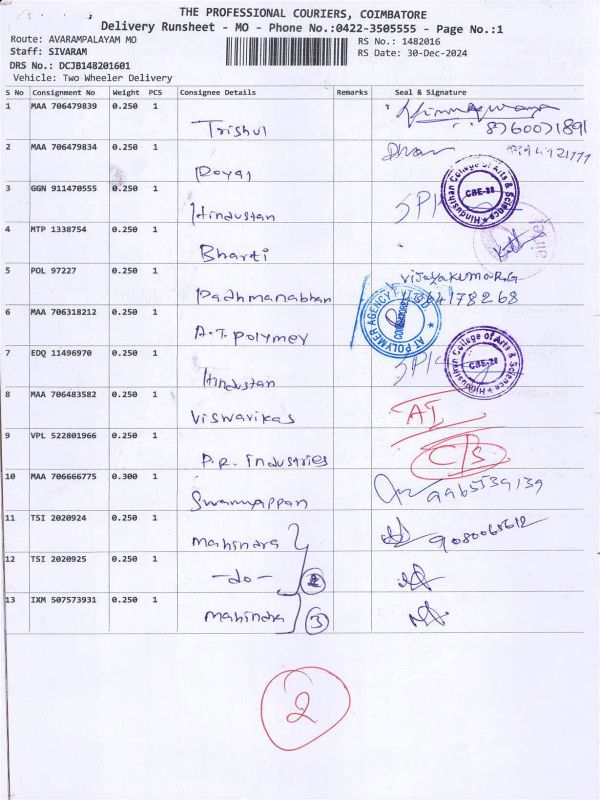 THE PROFESSIONAL COURIERS, COIMBATORE
Delivery Runsheet - MO - Phone No.:0422-3505555 - Page No.:1
Route: AVARAMPALAYAM MO RS No.: 1482016
Staff: SIVARAM RS Date: 30-Dec-2024
DRS No.: DCJB148201601
Vehicle: Two Wheeler Delivery
S No Consignment No Weight PCS Consignee Details Remarks Seal & Signature
1 MAA 706479839 0.250 1 Trishul 8760071891
2 MAA 706479834 0.250 1
3 GGN 911470555 0.250 1 Hindustan Hindusthan College of Arts & Science CBE-28
4 MTP 1338754 0.250 1 Bharti airtel
5 POL 97227 0.250 1 Padhmanabhan VIJAYAKUMAR.G
6 MAA 706318212 0.250 1 A.T. polymer AT POLYMER AGENCY COIMBATORE
7 EDQ 11496970 0.250 1 Hindustan Hindusthan College of Arts & Science CBE-28
8 MAA 706483582 0.250 1 Viswavikas AI
9 VPL 522801966 0.250 1 P.R. Industries C/S
10 MAA 706666775 0.300 1 Swamyappan
11 TSI 2020924 0.250 1 Mahindra
12 TSI 2020925 0.250 1 -do-
13 IXM 507573931 0.250 1 Mahindra 3
2